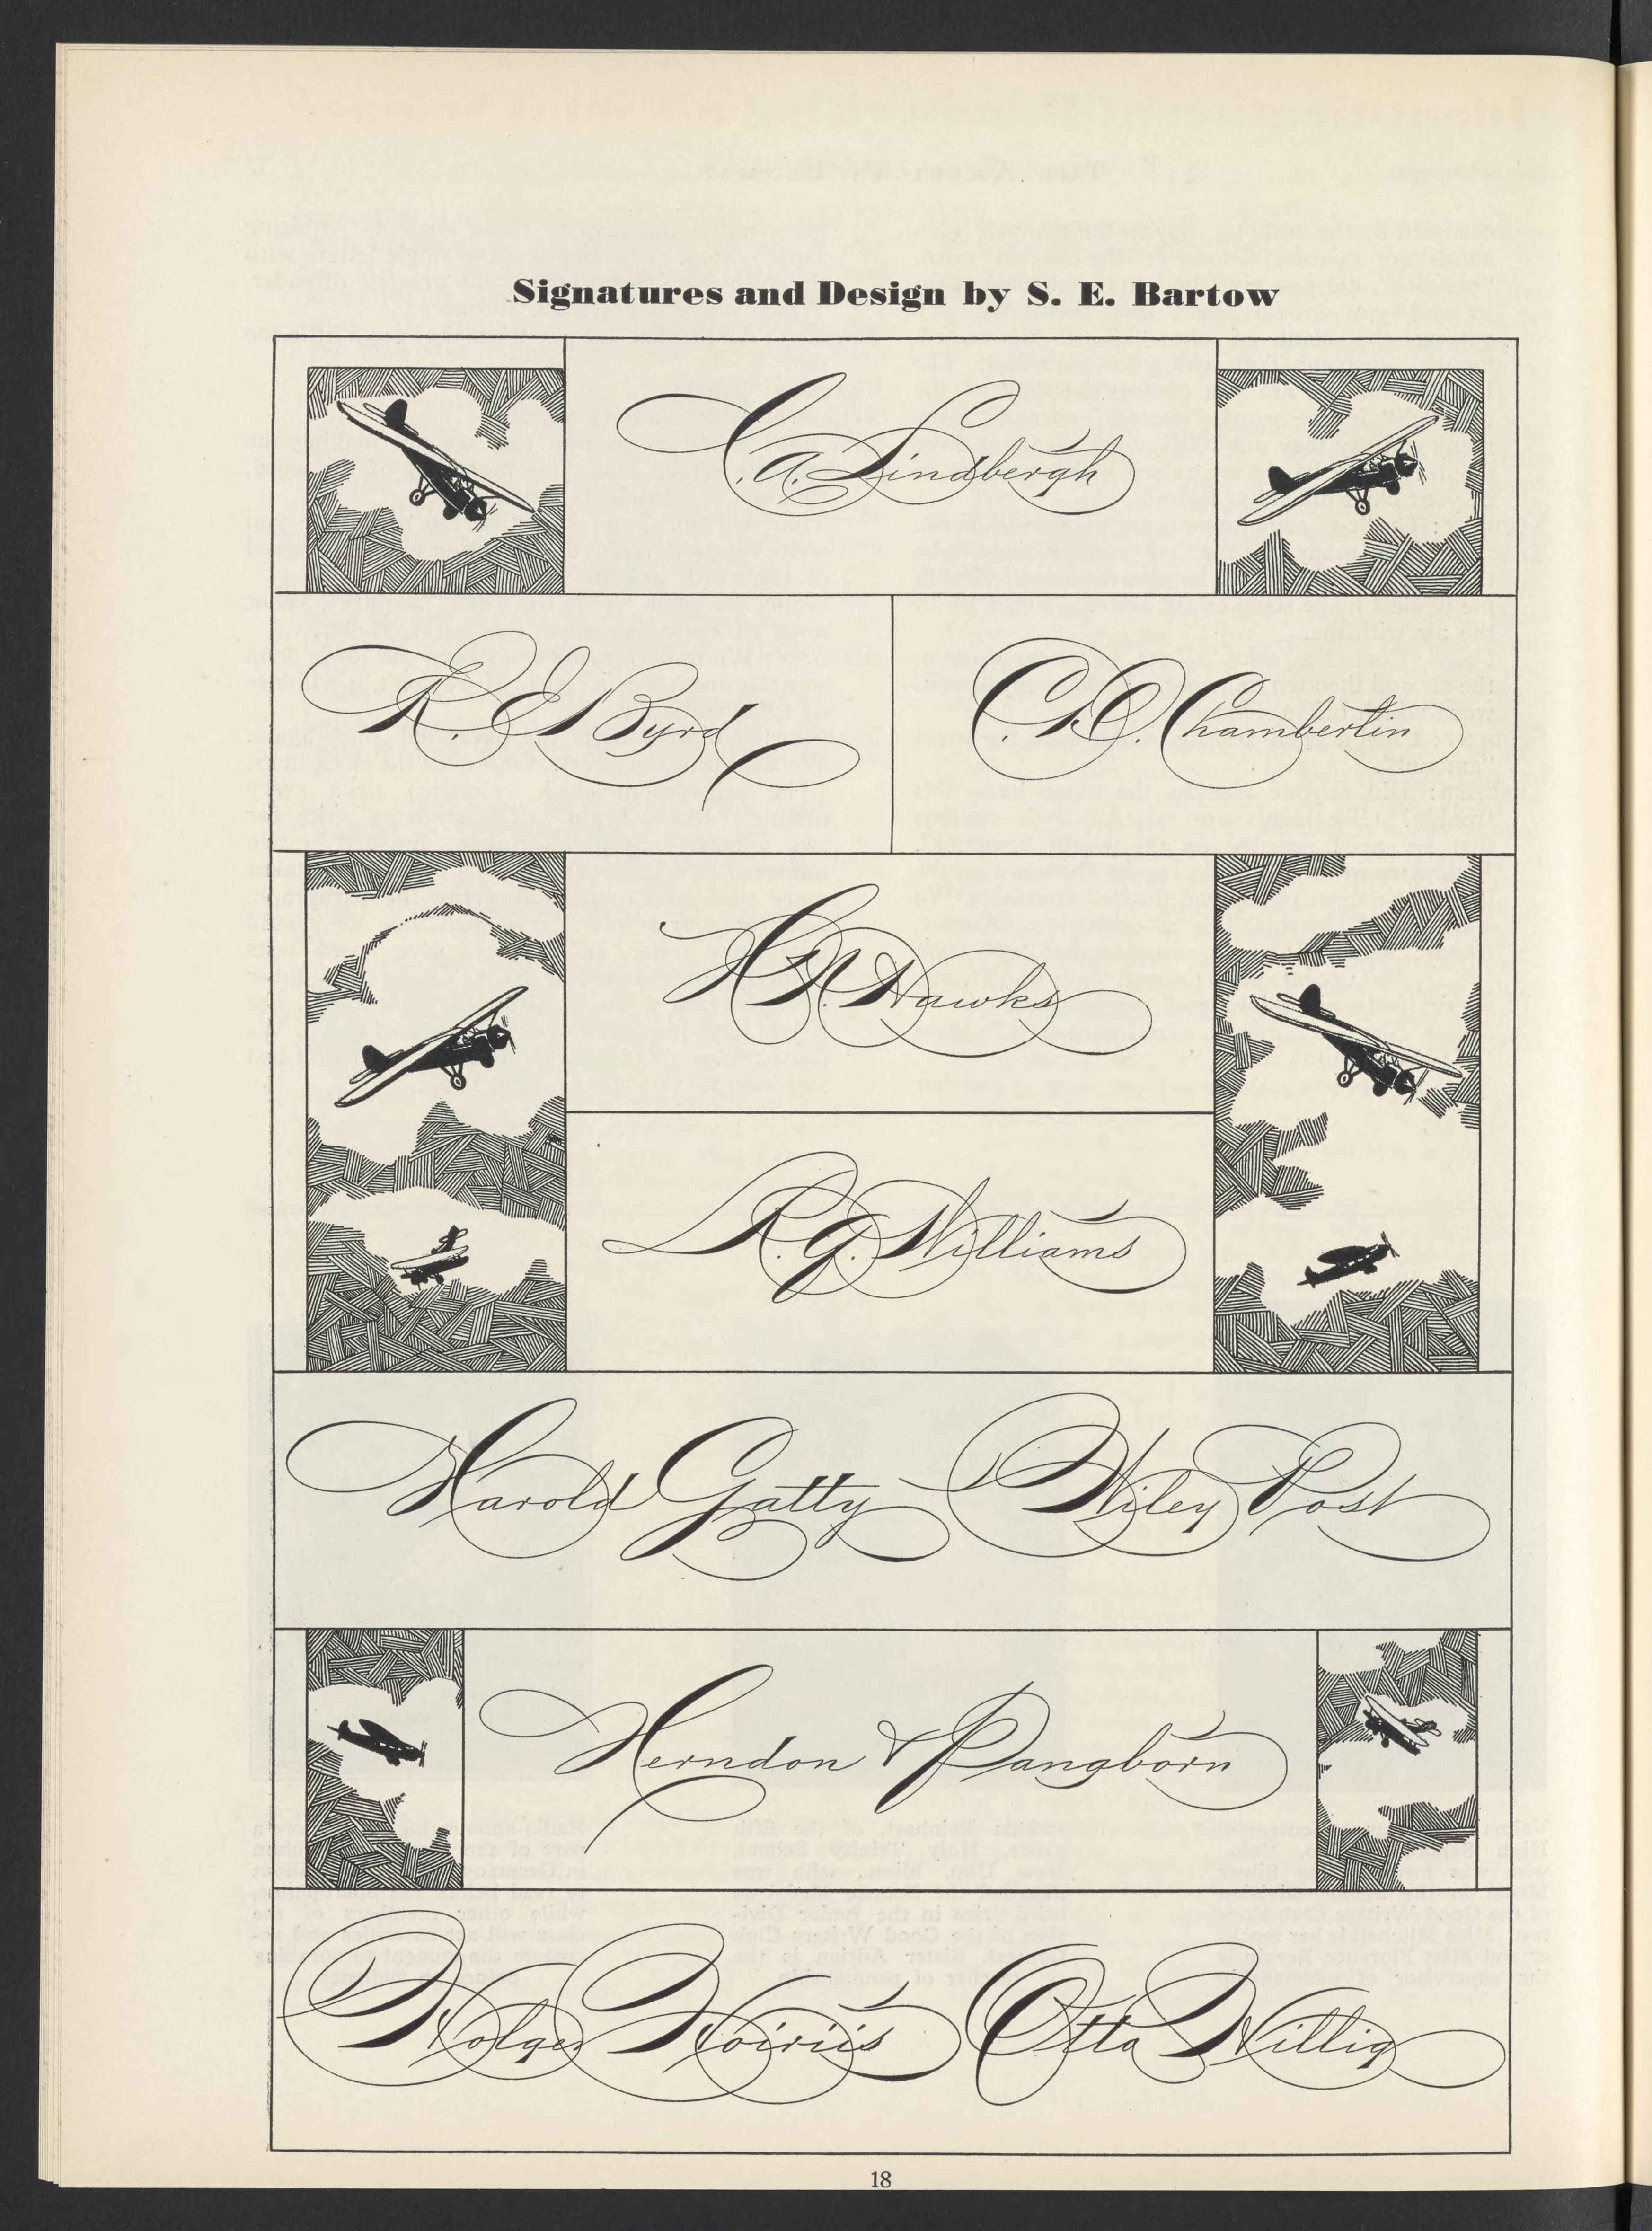 Signatures and Design by S. E. Bartow
C. A. Lindbergh
R. E. Byrd
C. D. Chamberlin
Hawks
R. G. Williams
Harold Gatty Wiley Post
Herndon & Pangborn
Holger Hoiriis Otto Hillig
18